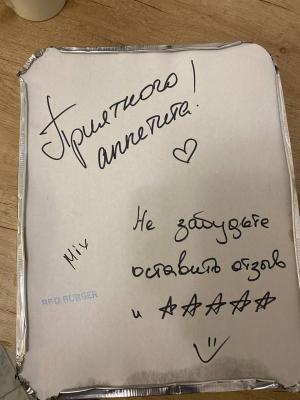 Приятного
аппетита!
Не забудьте
Mix
оставить отзыв
BEQ BURGER
и ☆☆☆☆☆